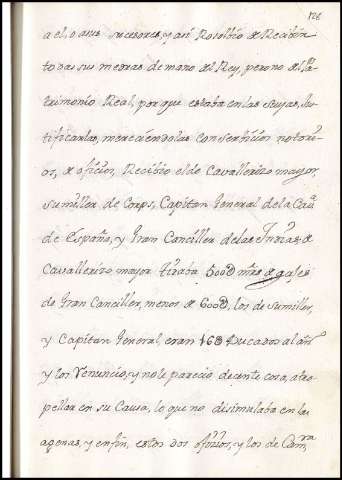 128
a el, o a sus sucesores, y asi Resolbio de Recibir
todas sus mercedes de mano del Rey, pero no del Pa-
trimonio Real, porque estaba en las suyas, Jus-
tificarlas, mereciendolas con Serficios notori-
os, de oficios, Recibio el de Cavallerizo mayor,
Sumiller de Corps, Capitan General de la Cau.ª
de España, y Gran Canciller de las Indias, de
Cavallerizo mayor tiraba 500@ mrs de gajes
de Gran Canciller, menos de 600@, los de Sumiller,
y Capitan General, eran 16@ Ducados al año
y los Renuncio, y no le parecio decente cosa, atro-
pellar en su Causa, lo que no disimulaba en las
agenas, y en fin, estos dos oficios, y los de Cam.ra